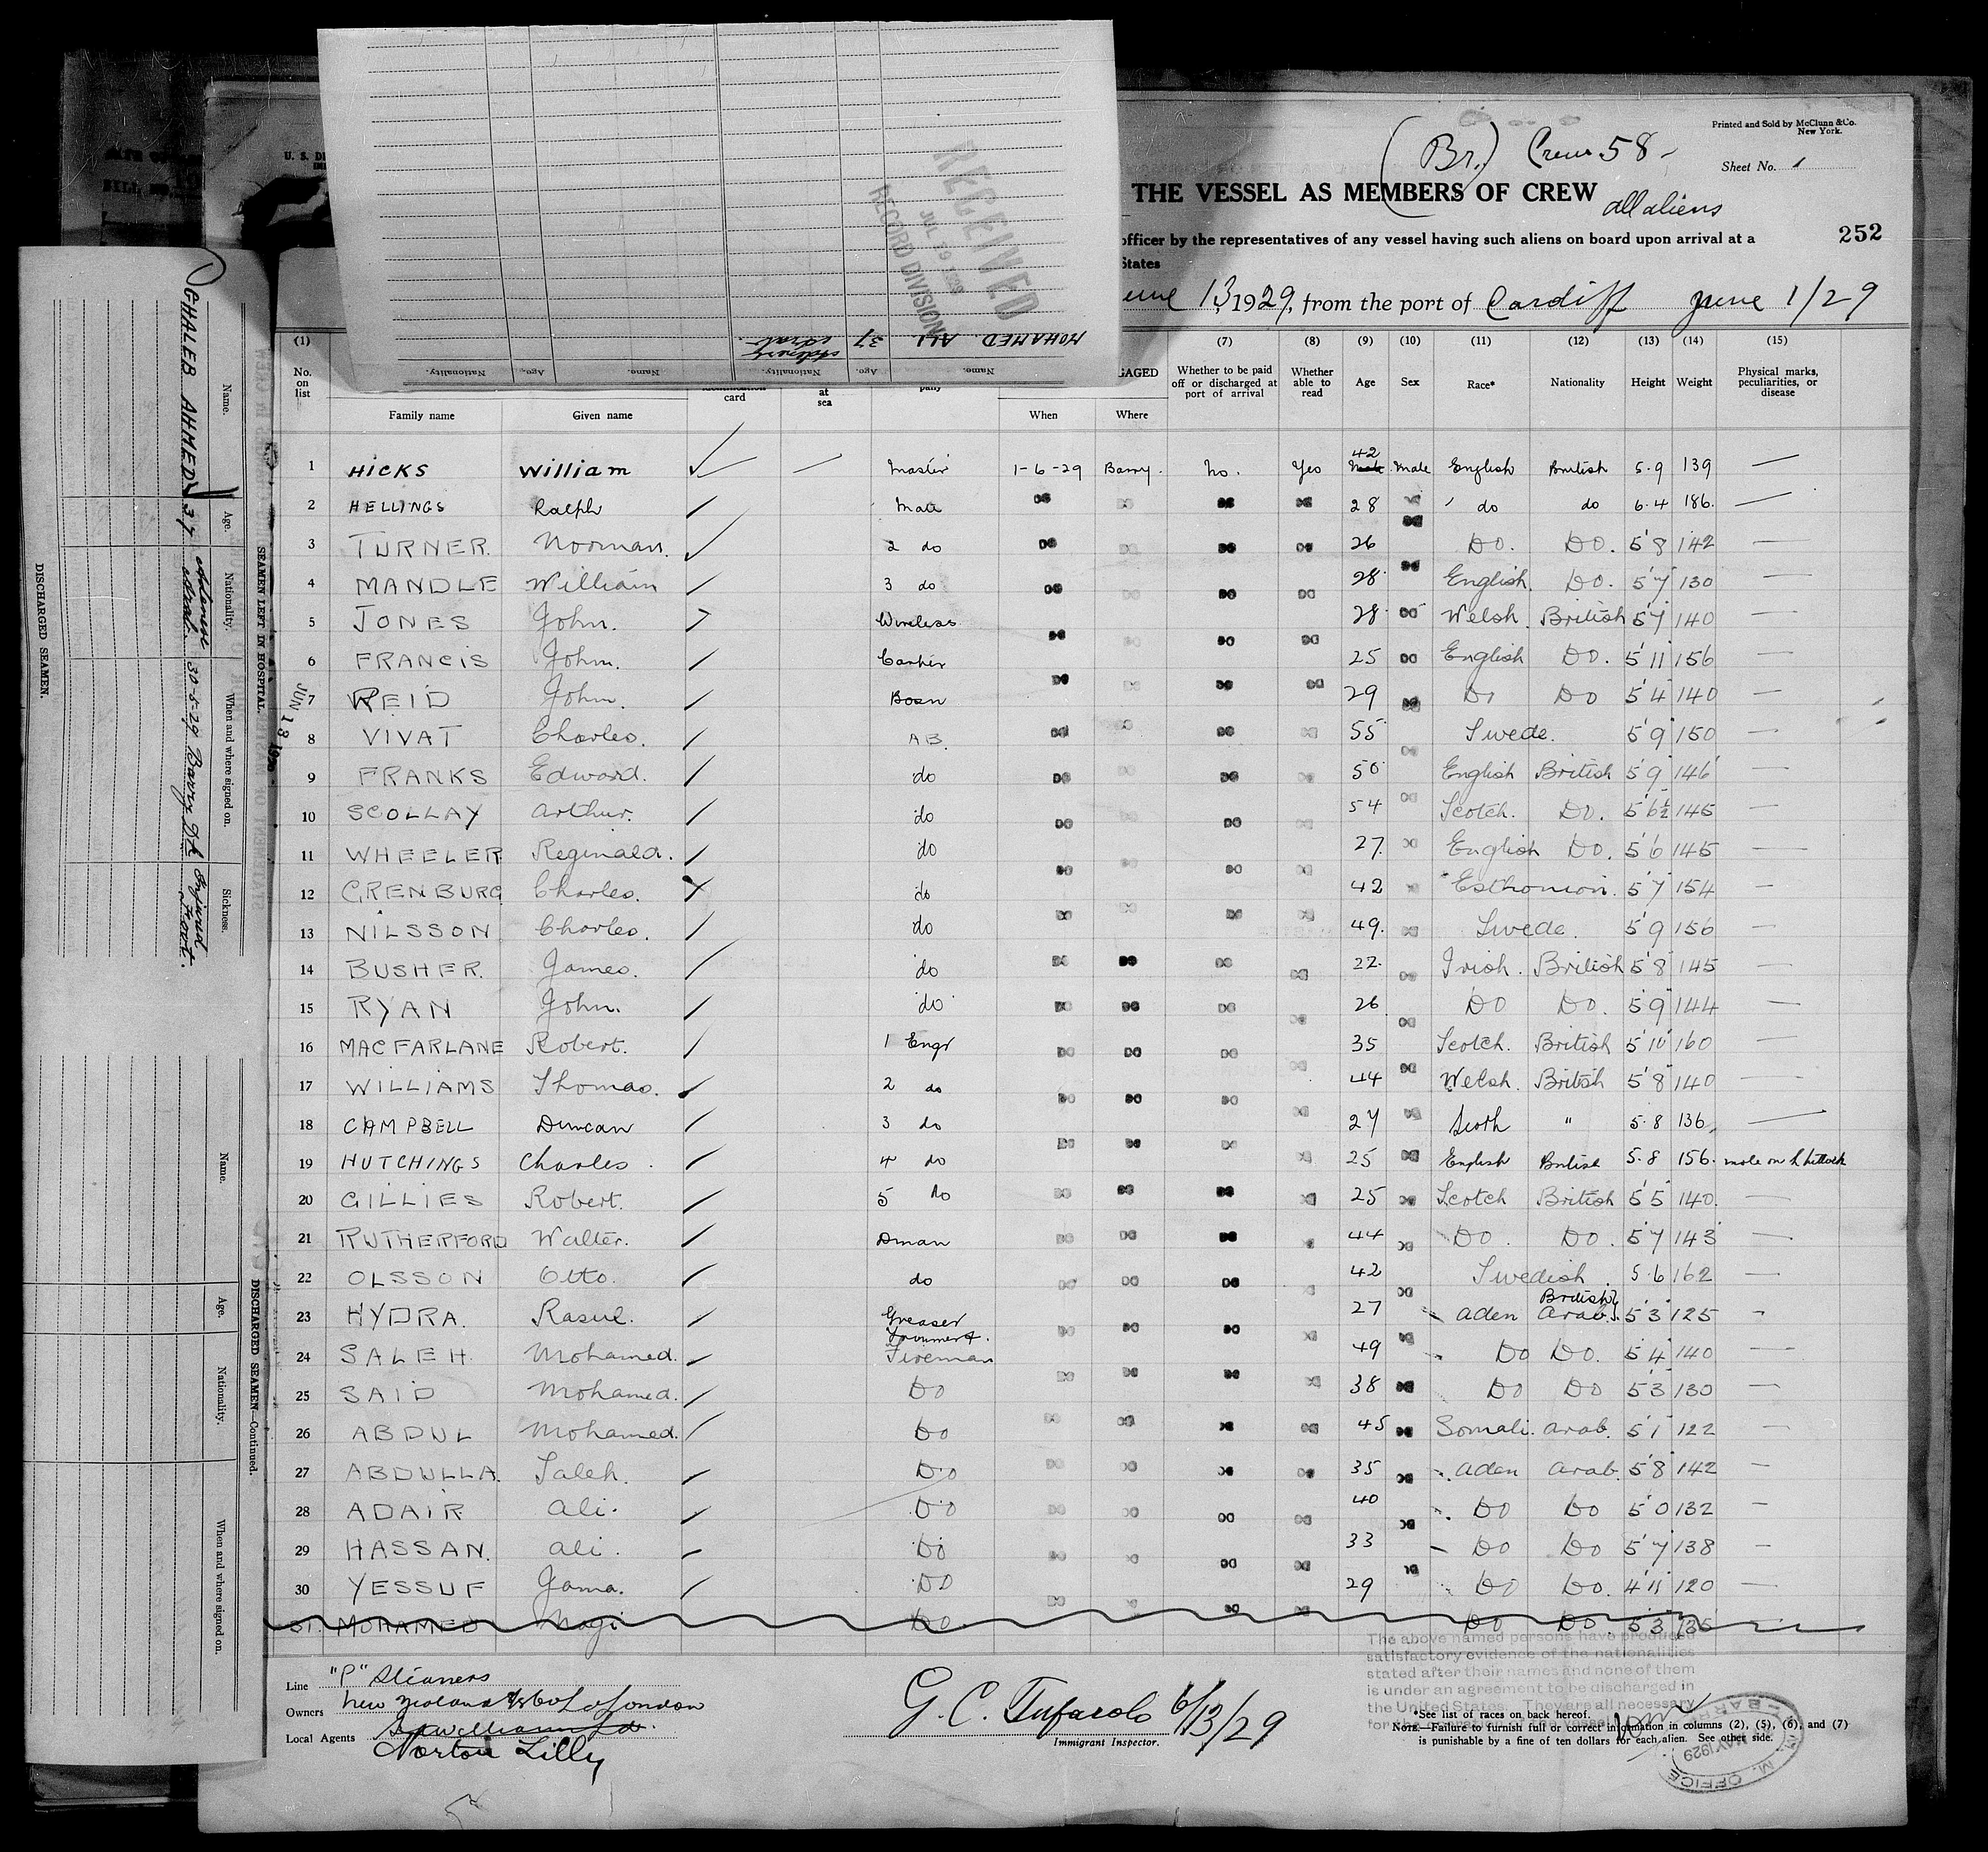 Printed and Sold by McClunn & Co.
New York.
(Br.) Crew 58-
Sheet No. 1
THE VESSEL AS MEMBERS OF CREW
all aliens
officer by the representatives of any vessel having such aliens on board upon arrival at a
252
States
June 13, 1929, from the port of Cardiff June 1/29
U. S. D
RECEIVED
JUL 29 1929
RECORD DIVISION
MOHAMED ALI. 37 Adenese Arab
Name. Age. Nationality. Name. Age. Nationality.
(1) (7) (8) (9) (10) (11) (12) (13) (14) (15)
No. on list
Family name Given name card at sea When Where
GAGED
Whether to be paid off or discharged at port of arrival
Whether able to read
Age Sex Race* Nationality Height Weight
Physical marks, peculiarities, or disease
1 HICKS William Master 1-6-29 Barry. No. Yes 42 Male English British 5.9 139 —
2 HELLINGS Ralph Mate do 28 do do 6.4 186. —
3 TURNER. Norman. 2 do do 26 Do. Do. 5'8" 142 —
4 MANDLE William 3 do do 28 English. Do. 5'7" 130 —
5 JONES John. Wireless 28 do Welsh. British 5'7" 140 —
6 FRANCIS John. 25 do English Do. 5'11" 156 —
7 REID John. Bosn 29 do Do Do 5'4" 140 —
8 VIVAT Charles. AB. 55 Swede. 5'9" 150 —
9 FRANKS Edward. do 50 English British 5'9" 146 —
10 SCOLLAY Arthur. do 54 Scotch. Do. 5'6½ 145 —
11 WHEELER Reginald. do 27. English Do. 5'6" 145 —
12 GRENBURG Charles. do 42 Esthonian. 5'7" 154 —
13 NILSSON Charles. do 49. Swede. 5'9" 156 —
14 BUSHER. James. do 22. Irish. British 5'8" 145 —
15 RYAN John. do 26 Do Do. 5'9" 144 —
16 MACFARLANE Robert. 1 Engr 35 Scotch. British 5'10" 160 —
17 WILLIAMS Thomas. 2 do 44 Welsh. British 5'8" 140 —
18 CAMPBELL Duncan 3 do 27 Scoth " 5.8 136. —
19 HUTCHINGS Charles. 4 do 25 English British 5.8 156. mole on L buttock
20 GILLIES Robert. 5 do 25 Scotch British 5'5" 140. —
21 RUTHERFORD Walter. Dman 44 Do. Do. 5'7" 143 —
22 OLSSON Otto. do 42 Swedish. 5.6 162 —
23 HYDRA. Rasul. Greaser 27 Aden British Arab. 5'3" 125 -
24 SALEH. Mohamed. Fireman 49 Do Do. 5'4" 140 —
25 SAID Mohamed. Do 38 Do Do 5'3" 130 —
26 ABDUL Mohamed. Do 45 Somali. Arab. 5'1" 122 —
27 ABDULLA. Saleh. Do 35 Aden Arab. 5'8" 142 —
28 ADAIR Ali. Do 40 Do Do 5'0" 132 —
29 HASSAN. Ali. Do 33 Do Do 5'7" 138 —
30 YESSUF Jama. Do 29 Do Do. 4'11" 120 —
31. MOHAMED Nagi Do Do Do. 5'3" 135
The above named persons have produced
satisfactory evidence of the nationalities
stated after their names and none of them
is under an agreement to be discharged in
the United States. They are all necessary
for the
Line "P" Steamers
Owners New Zealand London
Local Agents
Norton Lilly
G. C. Tufarolo 6/13/29
Immigrant Inspector.
*See list of races on back hereof.
NOTE.—Failure to furnish full or correct information in columns (2), (5), (6), and (7)
is punishable by a fine of ten dollars for each alien. See other side.
M. M. OFFICE
MAY 1929
BARRY
DISCHARGED SEAMEN.
SEAMEN LEFT IN HOSPITAL.
Name. Age. Nationality. When and where signed on. Sickness.
GHALEB AHMED 37 Adenese Arab. 30-5-29 Barry Dk Injured Foot.
JUN 13 1929
DISCHARGED SEAMEN—Continued.
Name. Age. Nationality. When and where signed on.